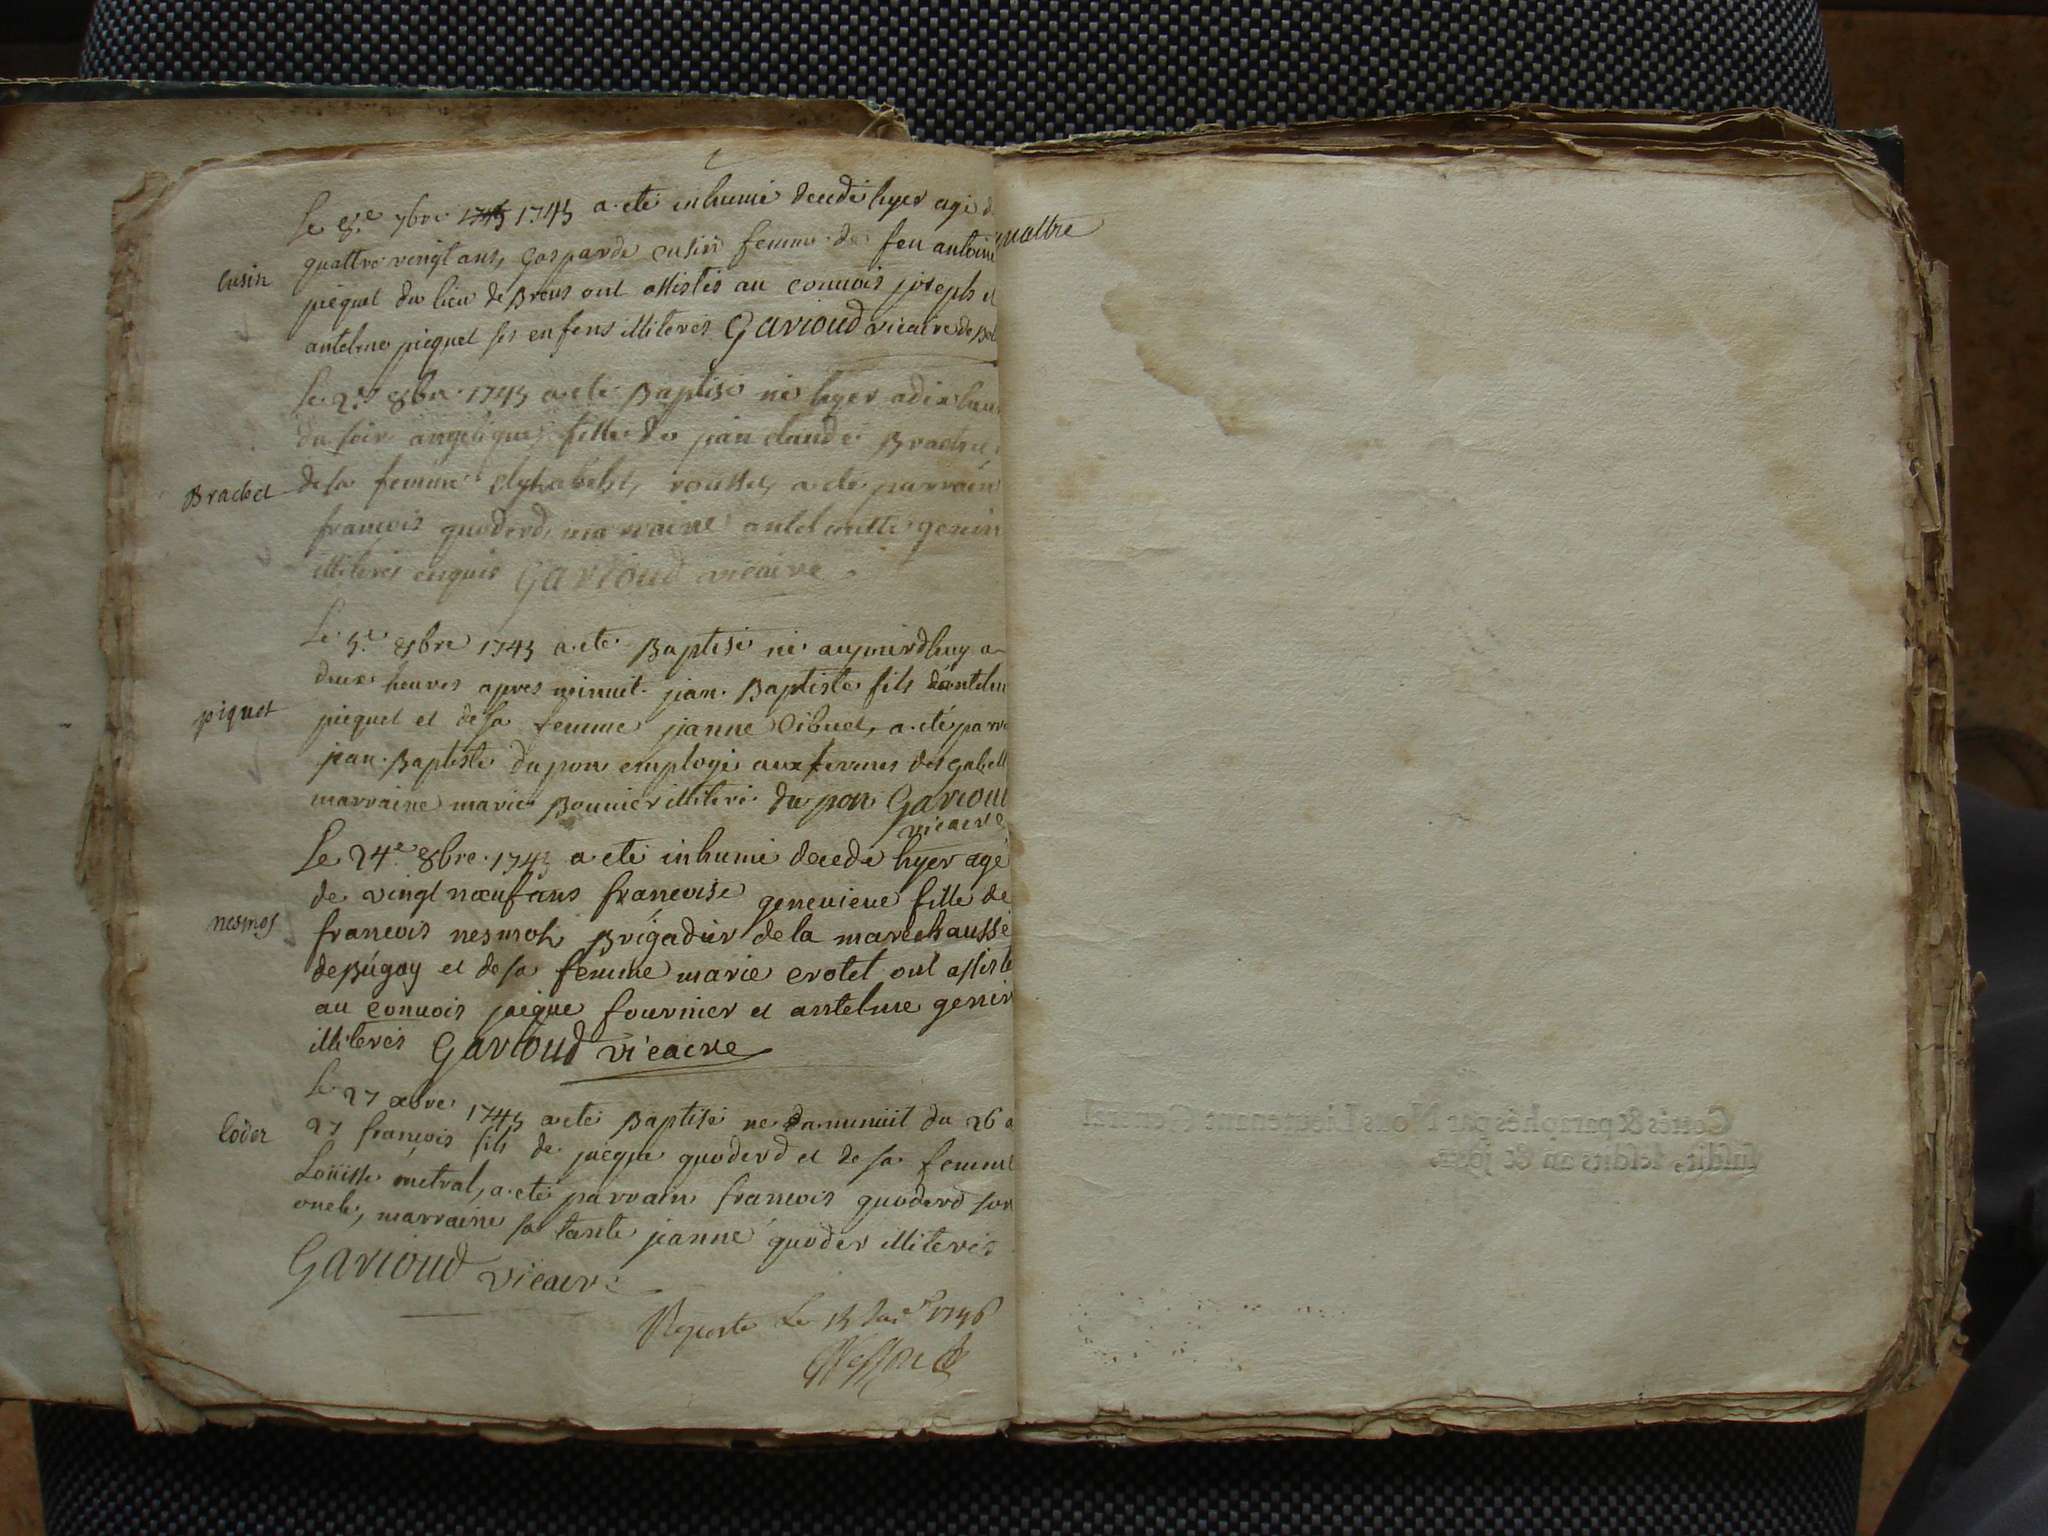 Le 8.e 7bre 1745 1745 a eté inhumé decedé hyer agé d
quattre
quattre vingt ans, gasparde cusin femme de feu antoine
cusin
piequet du lieu de Brens ont assistés au connois joseph et
antelme piequet ses enfens illiterés Garioud vicaire de Bel
Le 2.e 8bre 1745 a eté Baptisé né hyer a dix heur
du soir angelique fille de jean claude Brachet
Brachet
de sa femme Elysabeht, rousset, a eté parrain
francois quoderd, marraine antelmette genin
illiterés enquis Garioud vicaire
Le 5.e 8bre 1745 a eté Baptisé né aujourdhuy a
deux heures apres minuit jean Baptiste fils dantelm
piquet
piequet et de sa femme janne Dibuet, a eté parra
jean Baptiste du pon employé aux fermes des gabell
marraine marie Bonnier illiteré du pon Garioud
vicaire
Le 24.e 8bre 1745 a eté inhumé decedé hyer agé
de vingt nœuf ans francoise genevieve fille de
nesmos
francois nesmoh Brigadier de la marechaussé
de Bugay et de sa femme marie crotet ont assisté
au connois jaique fournier et antelme genin
illiterés Garioud vicaire
Le 27 8bre 1745 a eté Baptisé né da minuit du 26 a
coder
27 françois fils de jacque quoderd et de sa femme
Loüisse metral, a eté parrain francois quoderd son
oncle, marraine sa tante jeanne quoder illiterés
Garioud vicaire
Reporté Le 15 Jan.er 1746
Cottés & paraphés par Nous Lieutenant General
susdit, lesdits an & jour.